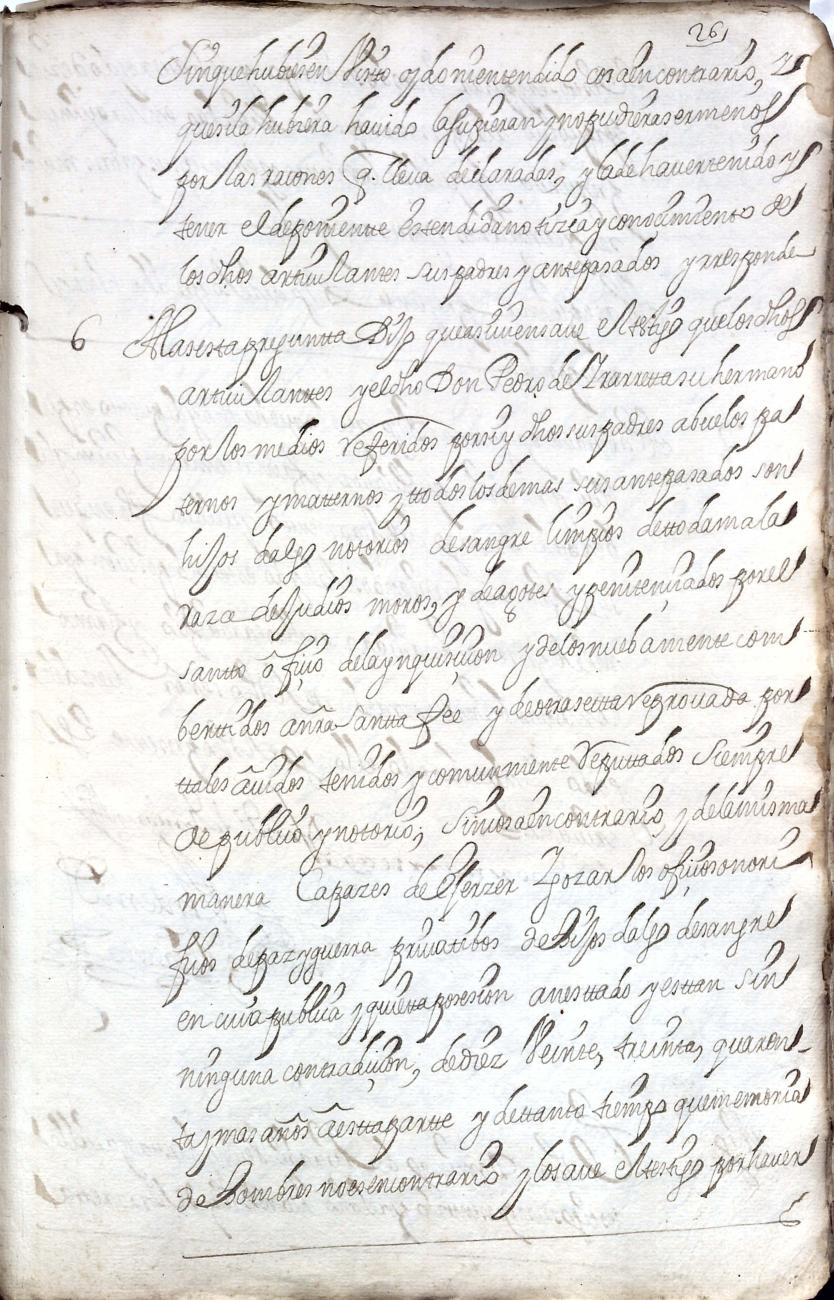 26
Sin que hubiesen Visto oydo ni entendido cosa en contrario, y
que si la hubiera havido la supieran y no pudiera ser menos
por las raçones q. lleva declaradas, y la de haver tenido y
tener el deponiente estendida notizia y conocimiento de
los dhos articulantes sus padres y antepasados y rresponde
6 A la sesta preguntta Dijo que asi vien save el testigo que los dhos
articulanttes y el dho Don Pedro de Yrarretta su hermano
por los medios Referidos por si y dhos sus padres abuelos pa
ternos y matternos y ttodos los demas sus antepasados son
hijos dalgo notorios de sangre limpios de ttoda mala
raza de Judios moros, y de agotes y penitenciados por el
santto ofiçio de la ynquisicion y de los nuebamente com
berttidos a nra santta Fee y de otra setta Reprovada por
ttales avidos tenidos y comunmente Reputtados siempre
de publico y notorio, sin cosa en contrario, y de la misma
manera Capazes de Exerzer y gozar los ofiçios onori
ficos de paz y guerra privatibos de hijos dalgo de sangre
en cuia publica y quietta posesion an esttado y esttan sin
ninguna contradiçion, de diez Veinte, treinta, quaren-
ta y mas años a estta partte y de ttanto tiempo que memoria
de hombres no es en contrario y lo save el testigo por haver